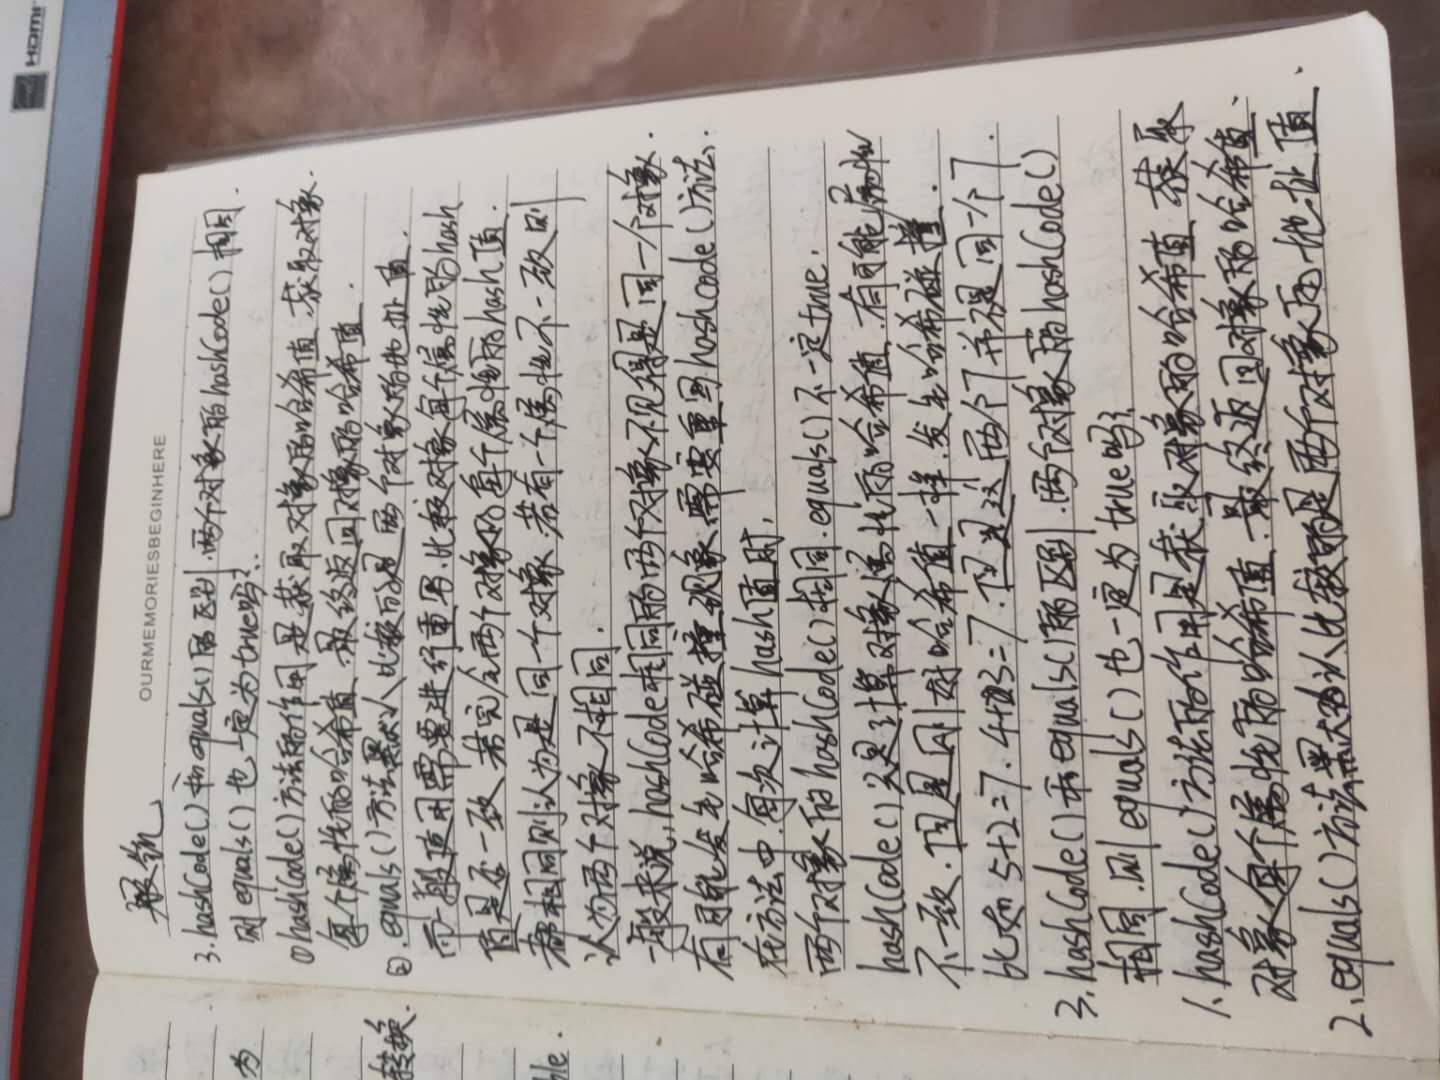 HDMI
OURMEMORIESBEGINHERE
3. hashCode()和equals()的区别.两个对象的hashCode()相同.
则equals()也一定为true吗?
①hashCode()方法的作用是获取对象的哈希值.获取对象
每个属性的哈希值.最终返回对象的哈希值.
②.equals()方法默认比较的是两个对象的地址值.
而一般使用需要进行重写.比较对象每个属性的hash
值是否一致.若完全两个对象的每个属性的hash值
都相同则认为是同一个对象.若有一个属性不一致则
认为两个对象不相同.
一般来说,hashCode相同的两个对象不见得是同一个对象.
有可能发生哈希碰撞现象.需要重写hashCode()方法,
在方法中.每次计算hash值时,
两个对象的hashCode()相同.equals()不一定true.
hashCode()只是计算对象属性的哈希值.有可能属性
不一致.但是因为哈希值一样.发生哈希碰撞.
比如5+2=7.4+3=7.但是这两个7并不是同一个7.
3.hashCode()和equals()的区别.两个对象的hashCode()
相同.则equals()也一定为true吗?
1.hashCode()方法的作用是获取对象的哈希值.获取
对象每个属性的哈希值.最终返回对象的哈希值.
2.equals()方法默认比较的是两个对象的地址值.
为
转换.
ble.